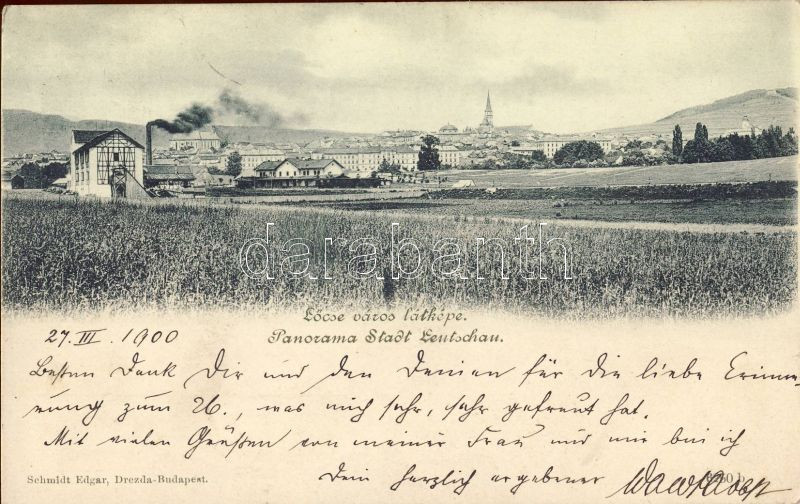 darabanth
Lőcse város látképe.
Panorama Stadt Leutschau.
27. III. 1900
Besten Dank Dir und den Deinen für die liebe Erinne-
rung zum 26., was mich sehr, sehr gefreut hat.
Mit vielen Grüßen von meiner Frau und mir bin ich
Dein herzlich ergebener
Schmidt Edgar, Drezda-Budapest.